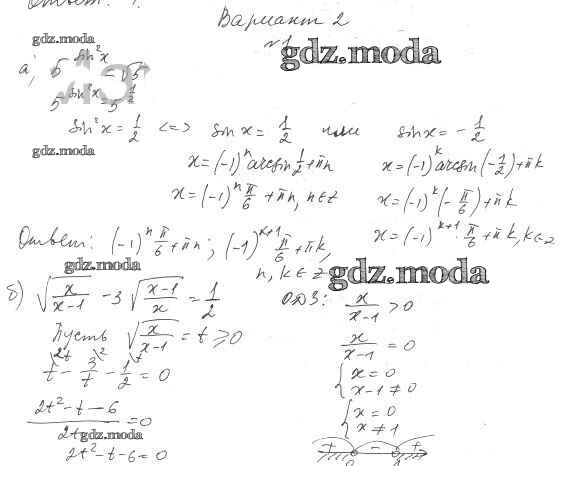 Ответ:
Вариант 2
gdz.moda
№1
gdz.moda
а) 5^{sin²x} = √5
5^{sin²x} = 5^{1/2}
sin²x = 1/2 <=> sin x = 1/2 или sin x = -1/2
gdz.moda
x = (-1)^n arcsin 1/2 + πn
x = (-1)^k arcsin(-1/2) + πk
x = (-1)^n π/6 + πn, n∈z
x = (-1)^k (-π/6) + πk
x = (-1)^{k+1} · π/6 + πk, k∈z
Ответ: (-1)^n π/6 + πn; (-1)^{k+1} π/6 + πk,
n, k ∈ z
gdz.moda
gdz.moda
б) √(x/(x-1)) - 3√((x-1)/x) = 1/2
ОДЗ: x/(x-1) > 0
Пусть √(x/(x-1)) = t ≥ 0
x/(x-1) = 0
t^{\2t} - 3/t^{\2} - 1/2^{\t} = 0
{ x = 0
x-1 ≠ 0
(2t² - t - 6)/2t = 0
gdz.moda
{ x = 0
x ≠ 1
2t² - t - 6 = 0
+ - +
0 1